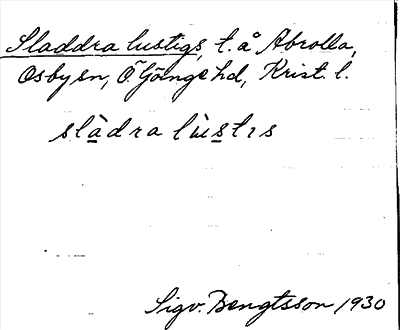 Sladdra lustigs, t. å Abrolla,
Osby sn, Ö Göinge hd, Krist. l.
slàdra lùstıs
Sigv. Bengtsson 1930